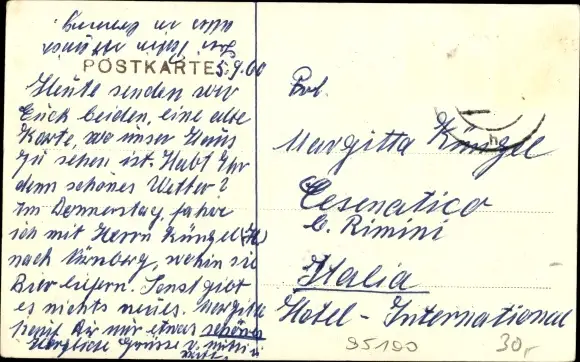 POSTKARTE
5.9.60
Heute senden wir
Euch beiden, eine alte
Karte, wo unser Haus
zu sehen ist. Habt Ihr
denn schönes Wetter?
Am Donnerstag, fahre
ich mit Herrn Küngel (H)
nach Nürnberg, wohin sie
Bier liefern. Sonst gibt
es nichts neues. Margitta
Du mir etwas schönes
Herzliche Grüsse v.
Margitta Küngel
Cesenatico
b. Rimini
Italia
Hotel - International
h
95190
30,-